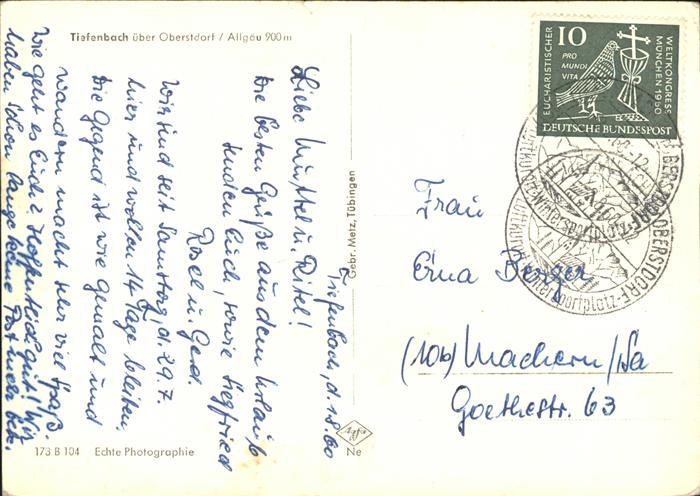 Tiefenbach über Oberstdorf / Allgäu 900 m
Tiefenbach, d. 1.8.60
Liebe Muttel u. Ritel!
Die besten Grüße aus dem Urlaub
senden Euch, sowie Siegfried
Rosel u. Gerd.
Wir sind seit Samstag d. 29.7.
hier und wollen 14 Tage bleiben.
Die Gegend ist wie gemalt und
wandern macht sehr viel Spaß.
Wie geht es Euch? Hoffentlich gut! Wir
haben schon lange keine Post mehr
173 B 104 Echte Photographie
Gebr. Metz, Tübingen
Ne
10
EUCHARISTISCHER
WELTKONGRESS
MÜNCHEN 1960
PRO
MUNDI
VITA
DEUTSCHE BUNDESPOST
OBERSTDORF
Wintersportplatz
Frau
Erna Berger
(10b) Machern/Sa
Goethestr. 63